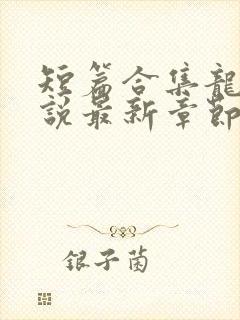 短篇合集龍
說最新章節
银子菌